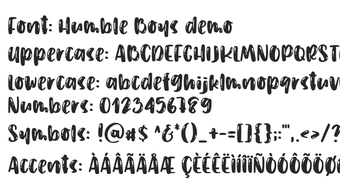 Font: Humble Boys demo
Uppercase: ABCDEFGHIJKLMNOPQRST
Lowercase: abcdefghijklmnopqrstuv
Numbers: 0123456789
Symbols: !@#$ ^&*()_+-=[]{};:"',.<>/?
Accents: ÀÁÂÃÄÅÆ ÇÈÉÊËÌÍÎÏÑÒÓÔÕÖØ